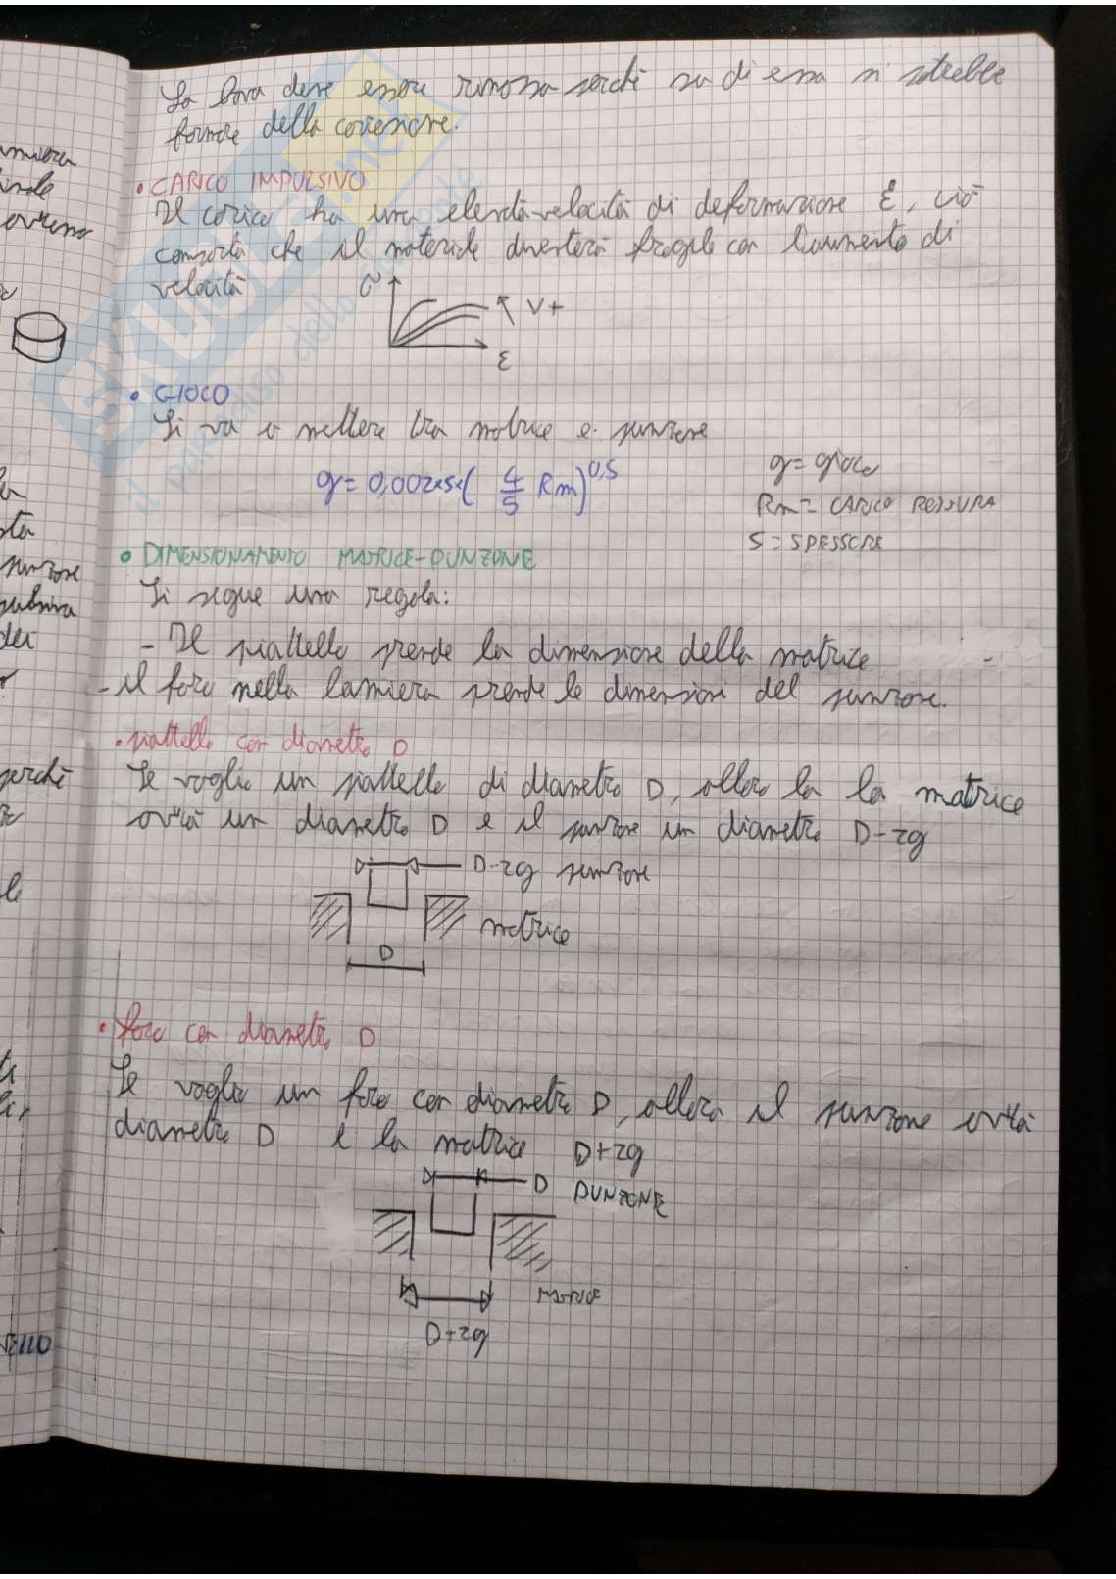 La bava deve essere rimossa perchè su di essa si potrebbe
formare della corrosione.
• CARICO IMPULSIVO
Il carico ha una elevata velocità di deformazione ε̇, ciò
comporta che il materiale diventerà fragile con l'aumento di
velocità
σ
V+
ε
• GIOCO
Si va a mettere tra matrice e punzone
g = 0,002×s×( 4/5 Rm)^0,5
g = gioco
Rm = CARICO ROTTURA
S = SPESSORE
• DIMENSIONAMENTO MATRICE-PUNZONE
Si segue una regola:
- Il piattello prende la dimensione della matrice
- il foro nella lamiera prende le dimensioni del punzone.
• piattello con diametro D
Se voglio un piattello di diametro D, allora la la matrice
avrà un diametro D e il punzone un diametro D-2g
D-2g punzone
matrice
D
• foro con diametro D
Se voglio un foro con diametro D, allora il punzone avrà
diametro D e la matrice D+2g
D PUNZONE
MATRICE
D+2g
amiera
inde
ovvero
sta
punzone
dei
perchè